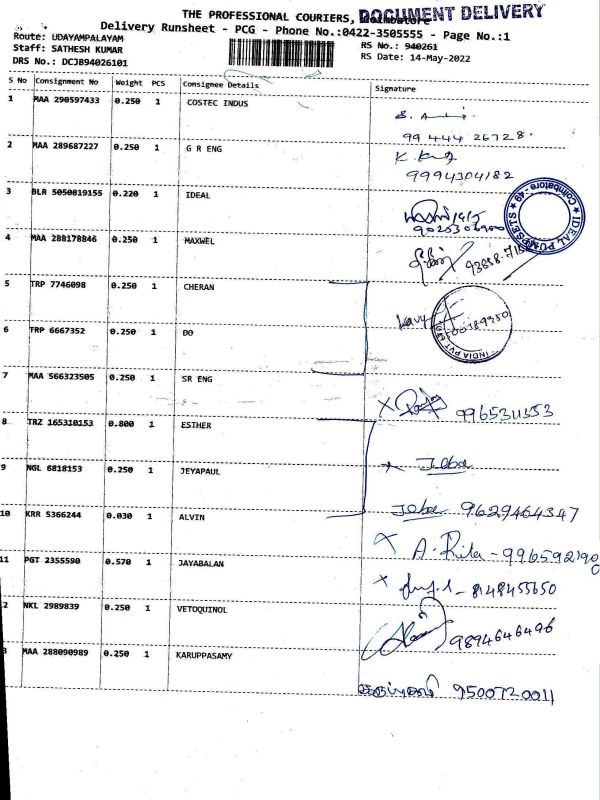 THE PROFESSIONAL COURIERS, Coimbatore
DOCUMENT DELIVERY
Delivery Runsheet - PCG - Phone No.:0422-3505555 - Page No.:1
Route: UDAYAMPALAYAM
RS No.: 940261
Staff: SATHESH KUMAR
RS Date: 14-May-2022
DRS No.: DCJB94026101
S No Consignment No Weight PCS Consignee Details Signature
1 MAA 290597433 0.250 1 COSTEC INDUS
99 444 26728.
2 MAA 289687227 0.250 1 G R ENG
9994304182
3 BLR 5050819155 0.220 1 IDEAL
IDEAL PUMPSETS ★ Coimbatore - 49 ★
4 MAA 288178846 0.250 1 MAXWEL
5 TRP 7746098 0.250 1 CHERAN
6 TRP 6667352 0.250 1 DO
INDIA PVT
7 MAA 566323505 0.250 1 SR ENG
8 TRZ 165310153 0.800 1 ESTHER
Jeba
9 NGL 6818153 0.250 1 JEYAPAUL
Jeba 9629464347
10 KRR 5366244 0.030 1 ALVIN
A. Rita - 996592190
11 PGT 2355590 0.570 1 JAYABALAN
8148455650
2 NKL 2989839 0.250 1 VETOQUINOL
9894646496
3 MAA 288090989 0.250 1 KARUPPASAMY
9500720011